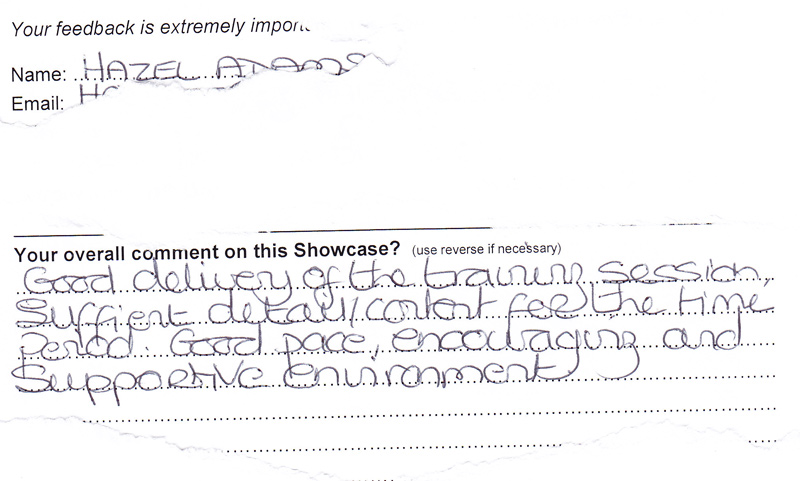 Your feedback is extremely impor
Name: HAZEL ADAMS
Email: H
Your overall comment on this Showcase? (use reverse if necessary)
Good delivery of the training session,
Suffient detail/content for the time
Period. Good pace, encouraging and
Supportive environment